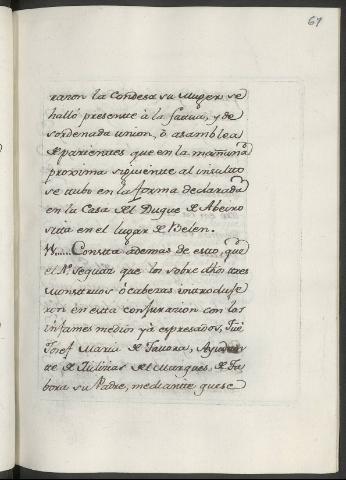 67
ranon la Condesa su Muger se
halló presente à la fatua, y de
sordenada union, ò asamblea
de parientes que en la mañana
proxima siguiente al insulto
se tubo en la forma declarada
en la Casa del Duque de Abeiro
sita en el lugar de Belen.
Consta ademas de esto, que
el Nº seguia que los sobre dhos tres
monstruos ó cabezas introduje
ron en esta conjurazion con los
infames medios ya espresados, fuè
Josef Maria de Tavora, Ayudan
te de Militias del Marques, de Ta
bora su Padre, mediante que se